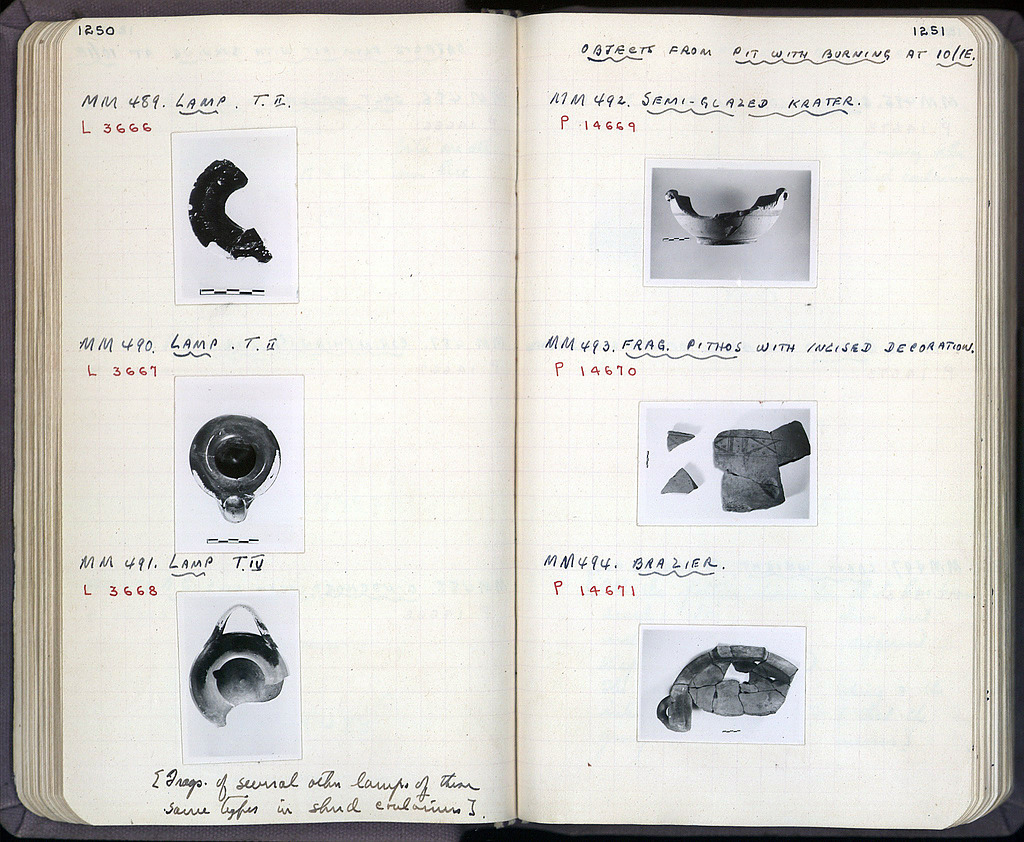 1250
MM 489. LAMP. T. II.
L 3666
MM 490. LAMP. T. II
L 3667
MM 491. LAMP T. IV
L 3668
[Frags. of several other lamps of these
same types in sherd containers].
1251
OBJECTS FROM PIT WITH BURNING AT 10/ΙΕ.
MM 492. SEMI-GLAZED KRATER.
P 14669
MM 493. FRAG. PITHOS WITH INCISED DECORATION.
P 14670
MM 494. BRAZIER.
P 14671